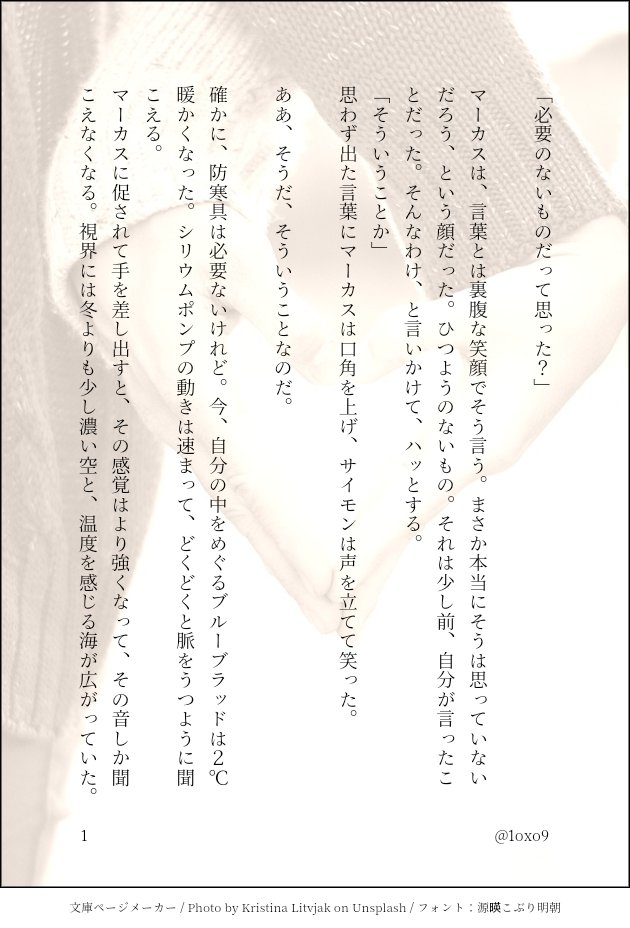 「必要のないものだって思った？」
マーカスは、言葉とは裏腹な笑顔でそう言う。まさか本当にそうは思っていない
だろう、という顔だった。ひつようのないもの。それは少し前、自分が言ったこ
とだった。そんなわけ、と言いかけて、ハッとする。
「そういうことか」
思わず出た言葉にマーカスは口角を上げ、サイモンは声を立てて笑った。
ああ、そうだ、そういうことなのだ。
確かに、防寒具は必要ないけれど。今、自分の中をめぐるブルーブラッドは２℃
暖かくなった。シリウムポンプの動きは速まって、どくどくと脈をうつように聞
こえる。
マーカスに促されて手を差し出すと、その感覚はより強くなって、その音しか聞
こえなくなる。視界には冬よりも少し濃い空と、温度を感じる海が広がっていた。
1
@1oxo9
文庫ページメーカー / Photo by Kristina Litvjak on Unsplash / フォント：源暎こぶり明朝